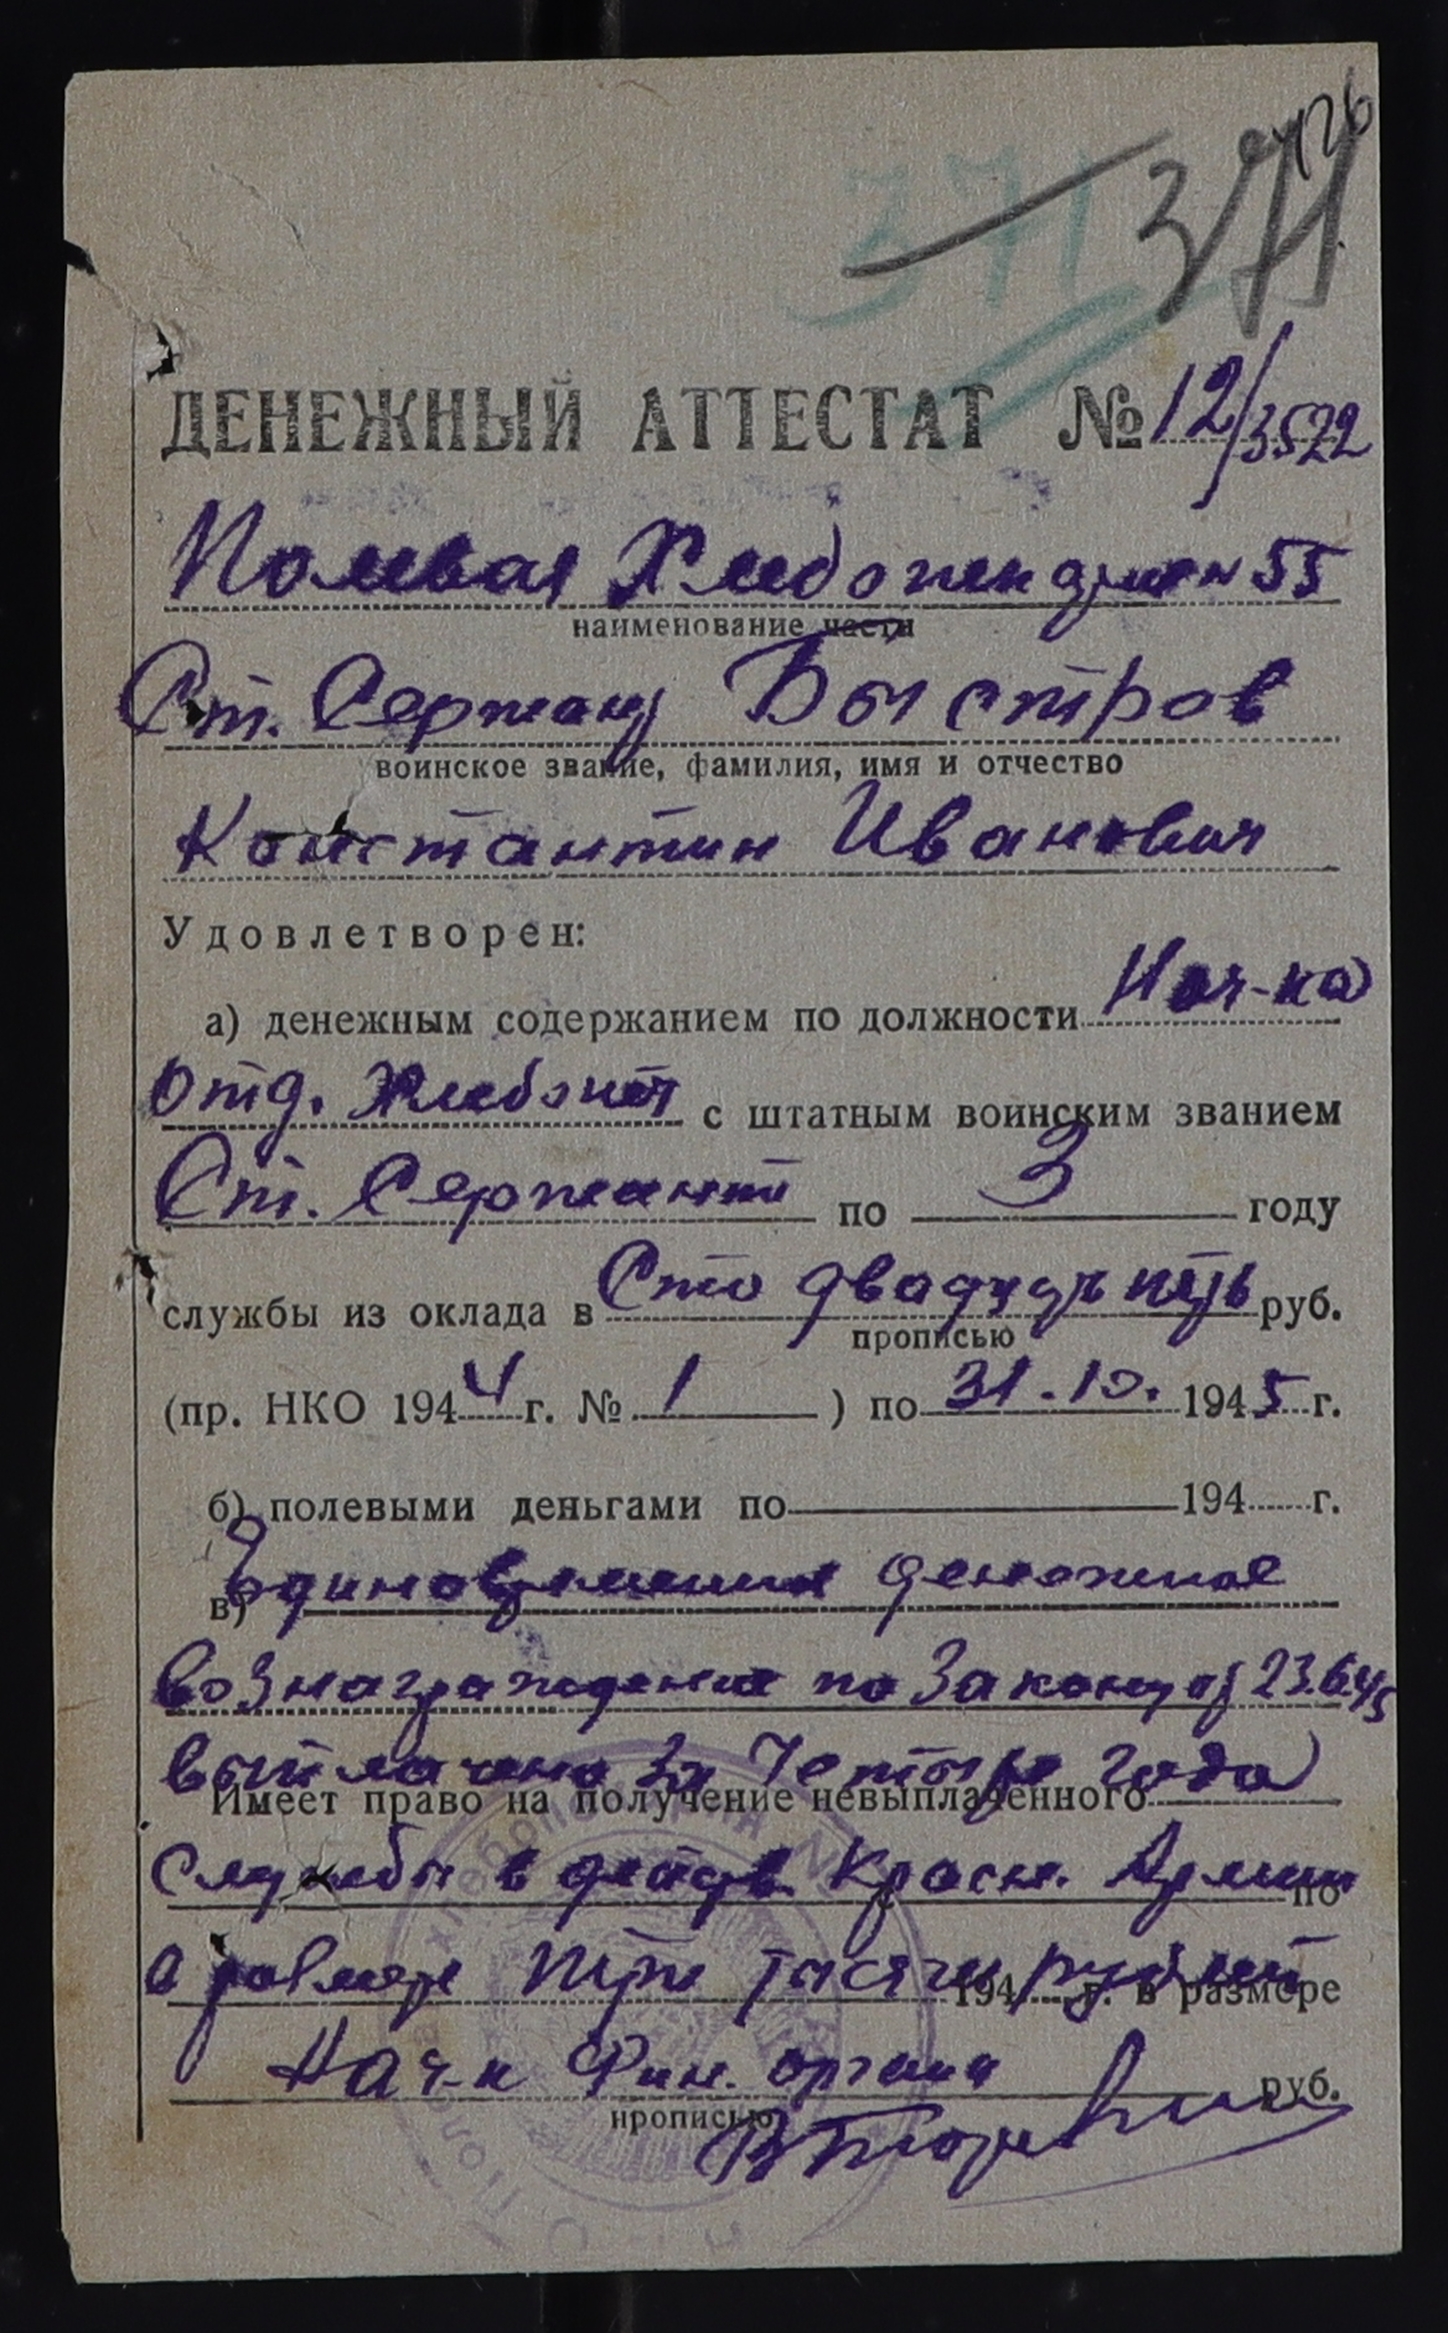 371
371
ДЕНЕЖНЫЙ АТТЕСТАТ № 12/3522
Полевая Хлебопекарня № 55
наименование части
Ст. Сержант Быстров
воинское звание, фамилия, имя и отчество
Константин Иванович
Удовлетворен:
а) денежным содержанием по должности Нач-ка
отд. Хлебопеч с штатным воинским званием
Ст. Сержант по 3 году
службы из оклада в Сто двадцать пять руб.
прописью
(пр. НКО 1944 г. № 1 ) по 31.10. 1945 г.
б) полевыми деньгами по 194 г.
в) Единовременное денежное
вознаграждение по Закону от 23.6.45
выплачено за Четыре года
Имеет право на получение невыплаченного
службы в действ. Красн. Армии
по
в размере три тысячи рублей
194 г. в размере
Нач-к Фин. органа
руб.
прописью